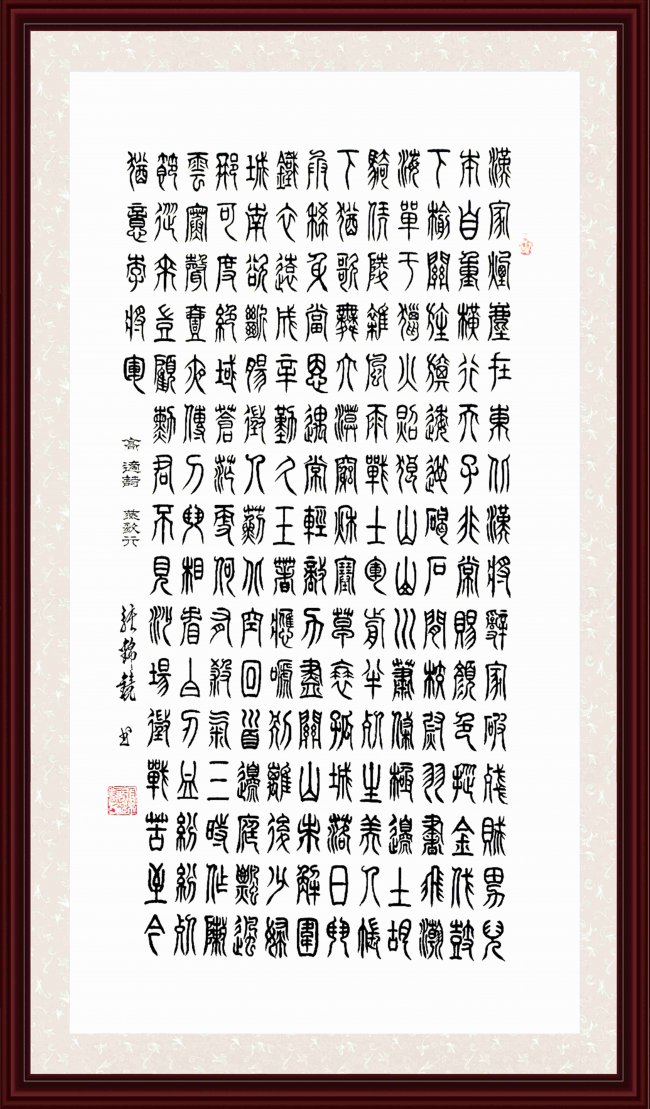 漢家煙塵在東北漢將辭家破殘賊男兒
本自重橫行天子非常賜顏色摐金伐鼓
下榆關旌旗逶迤碣石間校尉羽書飛瀚
海單于獵火照狼山山川蕭條極邊土胡
騎憑陵雜風雨戰士軍前半死生美人帳
下猶歌舞大漠窮秋塞草衰孤城落日鬥
兵稀身當恩遇常輕敵力盡關山未解圍
鐵衣遠戍辛勤久玉箸應啼別離後少婦
城南欲斷腸徵人薊北空回首邊庭飄颻
那可度絕域蒼茫更何有殺氣三時作陣
雲寒聲壹夜傳刁斗相看白刃血紛紛死
節從來豈顧勳君不見沙場徵戰苦至今
猶意李將軍
高適詩 燕歌行
書